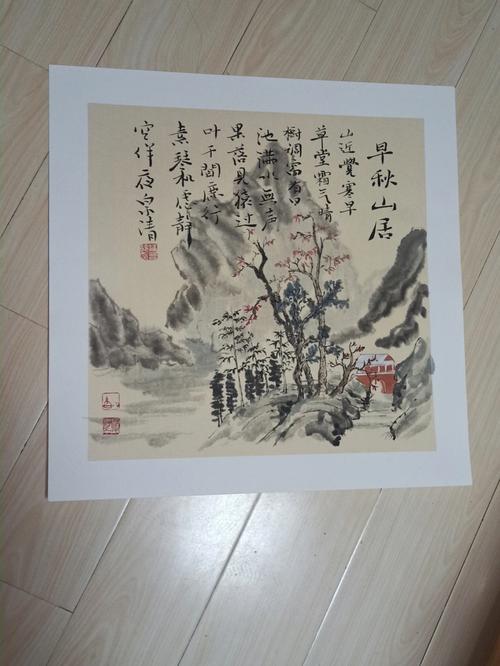 早秋山居
山近覺寒早
草堂霜气晴
樹凋窗有日
池满水無声
果落見猿过
叶干聞鹿行
素琴机虑静
空伴夜泉清